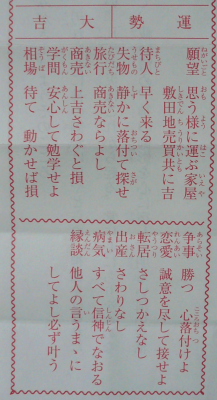 運勢大吉
願望 思う様に運ぶ家屋
敷田地売買共に吉
待人 早く来る
失物 静かに落付て探せ
旅行 商売ならよし
商売 上吉さわぐと損
学問 安心して勉学せよ
相場 待て 動かせば損
争事 勝つ 心落付けよ
恋愛 誠意を尽して接せよ
転居 さしつかえなし
出産 さわりなし
病気 すべて信神でなおる
縁談 他人の言うまゝに
してよし必ず叶う